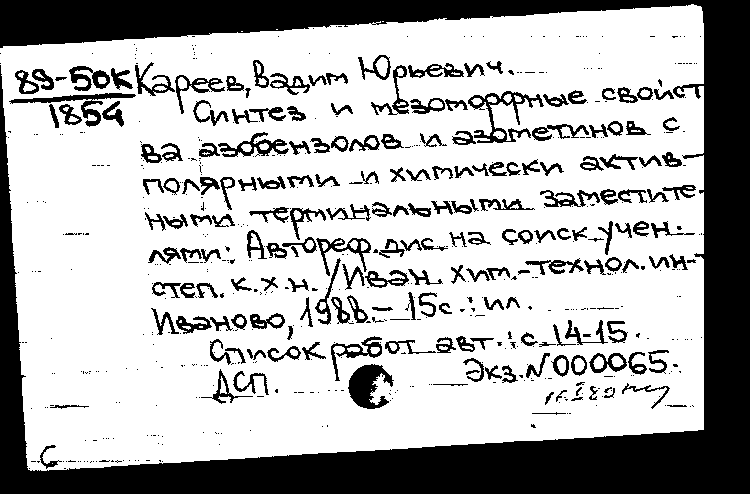 89-50К Кареев, Вадим Юрьевич.
1854 Синтез и мезоморфные свойст
ва азобензолов и азометинов с
полярными и химически актив-
ными терминальными заместите-
лями: Автореф. дис. на соиск. учен.
степ. к.х.н. / Иван. хим.-технол. ин-т
Иваново, 1988.- 15с.: ил.
Список работ авт.: с. 14-15.
ДСП. Экз. N 000065.
С